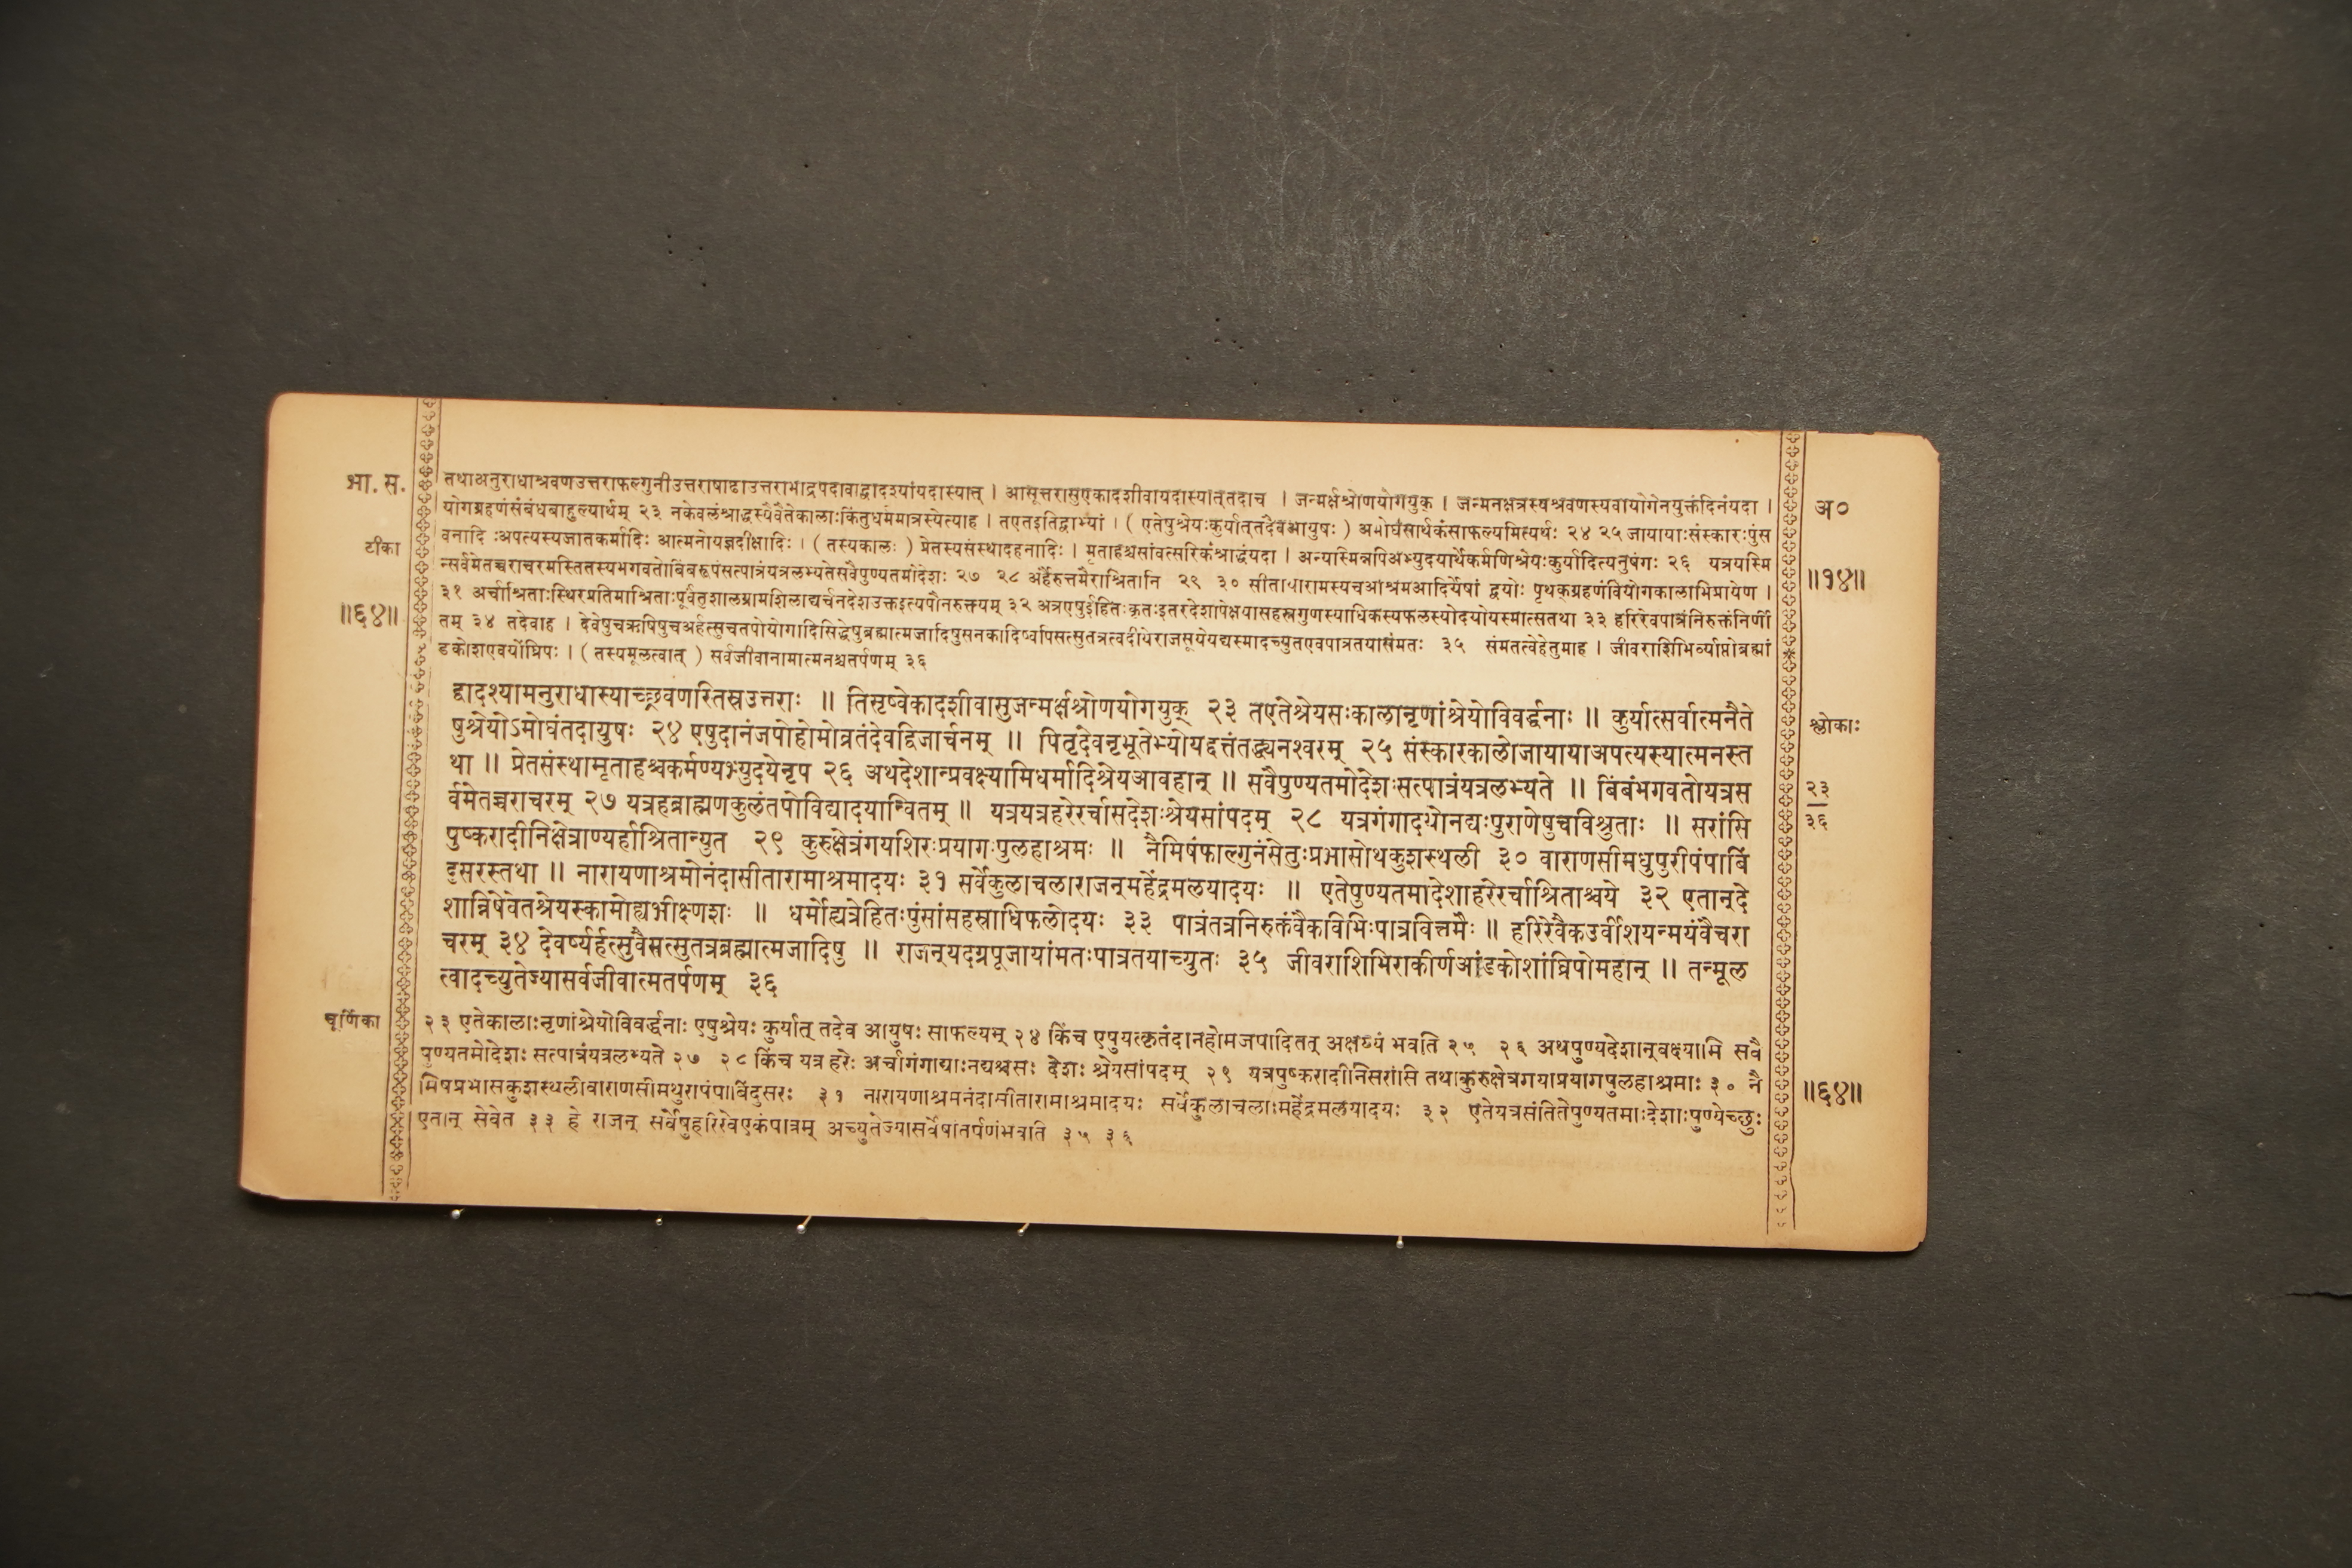 भा. स.
टीका
॥६४॥
चूर्णिका
तथाअनुराधाश्रवणउत्तराफल्गुनीउत्तराषाढाउत्तराभाद्रपदावाद्वादश्यांयदास्यात् । आसूत्तरासुएकादशीवायदास्यात्तदाच । जन्मर्क्षश्रोणयोगयुक् । जन्मनक्षत्रस्यश्रवणस्यवायोगेनयुक्तंदिनंयदा ।
योगग्रहणंसंबंधबाहुल्यार्थम् २३ नकेवलंश्राद्धस्यैवैतेकालाःकिंतुधर्ममात्रस्येत्याह । तएतइतिद्वाभ्यां । ( एतेषुश्रेयःकुर्यात्तदेवआयुषः ) अमोघंसार्थकंसाफल्यमित्यर्थः २४ २५ जायायाःसंस्कारःपुंस
वनादि ःअपत्यस्यजातकर्मादिः आत्मनोयज्ञदीक्षादिः । ( तस्यकालः ) प्रेतस्यसंस्थादहनादिः । मृताहश्चसांवत्सरिकंश्राद्धंयदा । अन्यस्मिन्नपिअभ्युदयार्थेकर्मणिश्रेयःकुर्यादित्यनुषंगः २६ यत्रयस्मि
न्सर्वमेतच्चराचरमस्तितस्यभगवतोबिंबरूपंसत्पात्रंयत्रलभ्यतेसवैपुण्यतमोदेशः २७ २८ अर्हैरुत्तमैराश्रितानि २९ ३० सीतायारामस्यचआश्रमआदिर्येषां द्वयोः पृथक्ग्रहणंवियोगकालाभिप्रायेण ।
३१ अर्चाश्रिताःस्थिरप्रतिमाश्रिताःपूर्वंतुशालग्रामशिलाद्यर्चनदेशउक्तइत्यपौनरुक्त्यम् ३२ अत्रएषुईहितःकृतःइतरदेशापेक्षयासहस्रगुणस्याधिकस्यफलस्योदयोयस्मात्सतथा ३३ हरिरेवपात्रंनिरुक्तंनिर्णी
तम् ३४ तदेवाह । देवेषुचऋषिषुचअर्हत्सुचतपोयोगादिसिद्धेषुब्रह्मात्मजादिषुसनकादिष्वपिसत्सुतत्रत्वदीयेराजसूयेयद्यस्मादच्युतएवपात्रतयासंमतः ३५ संमतत्वेहेतुमाह । जीवराशिभिर्व्याप्तोब्रह्मां
डकोशएवयोंघ्रिपः । ( तस्यमूलत्वात् ) सर्वजीवानामात्मनश्चतर्पणम् ३६
द्वादश्यामनुराधास्याच्छ्रवणस्तिस्रउत्तराः ॥ तिसृष्वेकादशीवासुजन्मर्क्षश्रोणयोगयुक् २३ तएतेश्रेयसःकालानृणांश्रेयोविवर्द्धनाः ॥ कुर्यात्सर्वात्मनैते
षुश्रेयोऽमोघंतदायुषः २४ एषुदानंजपोहोमोव्रतंदेवद्विजार्चनम् ॥ पितृदेवनृभूतेभ्योयद्दत्तंतद्ध्यनश्वरम् २५ संस्कारकालोजायायाअपत्यस्यात्मनस्त
था ॥ प्रेतसंस्थामृताहश्चकर्मण्यभ्युदयेनृप २६ अथदेशान्प्रवक्ष्यामिधर्मादिश्रेयआवहान् ॥ सवैपुण्यतमोदेशःसत्पात्रंयत्रलभ्यते ॥ बिंबंभगवतोयत्रस
र्वमेतच्चराचरम् २७ यत्रहब्राह्मणकुलंतपोविद्यादयान्वितम् ॥ यत्रयत्रहरेरर्चासदेशःश्रेयसांपदम् २८ यत्रगंगादयोनद्यःपुराणेषुचविश्रुताः ॥ सरांसि
पुष्करादीनिक्षेत्राण्यर्हाश्रितान्युत २९ कुरुक्षेत्रंगयशिरःप्रयागःपुलहाश्रमः ॥ नैमिषंफाल्गुनंसेतुःप्रभासोथकुशस्थली ३० वाराणसीमधुपुरीपंपाबिं
दुसरस्तथा ॥ नारायणाश्रमोनंदासीतारामाश्रमादयः ३१ सर्वेकुलाचलाराजन्महेंद्रमलयादयः ॥ एतेपुण्यतमादेशाहरेरर्चाश्रिताश्चये ३२ एतान्दे
शान्निषेवेतश्रेयस्कामोह्यभीक्ष्णशः ॥ धर्मोह्यत्रेहितःपुंसांसहस्राधिफलोदयः ३३ पात्रंतत्रनिरुक्तंवैकविभिःपात्रवित्तमैः ॥ हरिरेवैकउर्वीशयन्मयंवैचरा
चरम् ३४ देवर्ष्यर्हत्सुवैसत्सुतत्रब्रह्मात्मजादिषु ॥ राजन्यदग्रपूजायांमतःपात्रतयाच्युतः ३५ जीवराशिभिराकीर्णआंडकोशांघ्रिपोमहान् ॥ तन्मूल
त्वादच्युतेज्यासर्वजीवात्मतर्पणम् ३६
२३ एतेकालाःनृणांश्रेयोविवर्द्धनाः एषुश्रेयः कुर्यात् तदेव आयुषः साफल्यम् २४ किंच एषुयत्कृतंदानहोमजपादितत् अक्षय्यं भवति २५ २६ अथपुण्यदेशान्वक्ष्यामि सवै
पुण्यतमोदेशः सत्पात्रंयत्रलभ्यते २७ २८ किंच यत्र हरेः अर्चागंगाद्याःनद्यश्चसः देशः श्रेयसांपदम् २९ यत्रपुष्करादीनिसरांसि तथाकुरुक्षेत्रगयाप्रयागपुलहाश्रमाः ३० नै
मिषप्रभासकुशस्थलीवाराणसीमथुरापंपाबिंदुसरः ३१ नारायणाश्रमनंदासीतारामाश्रमादयः सर्वेकुलाचलाःमहेंद्रमलयादयः ३२ एतेयत्रसंतितेपुण्यतमाःदेशाःपुण्येच्छुः
एतान् सेवेत ३३ हे राजन् सर्वेषुहरिरेवएकंपात्रम् अच्युतेज्यासर्वेषांतर्पणंभवति ३५ ३६
अ०
॥१४॥
श्लोकाः
२३
३६
॥६४॥